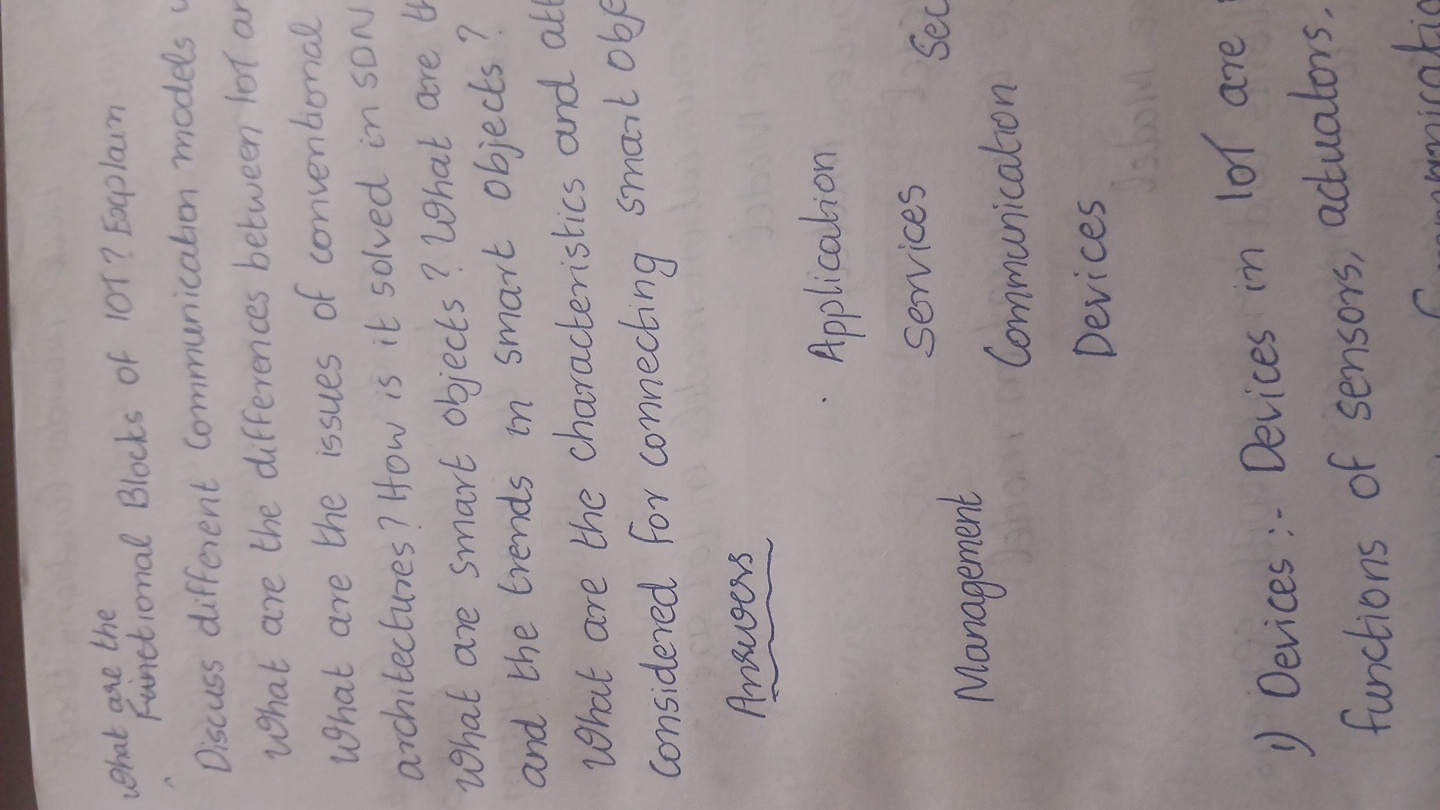 What are the
Functional Blocks of IOT? Explain
Discuss different Communication models
What are the differences between IoT
What are the issues of conventional
architectures? How is it solved in SDN
What are smart objects? What are
and the trends in smart objects?
What are the characteristics and
Considered for connecting smart
Answers
Application
Services
Management Communication
Devices
1) Devices:- Devices in IoT are
functions of sensors, actuators,